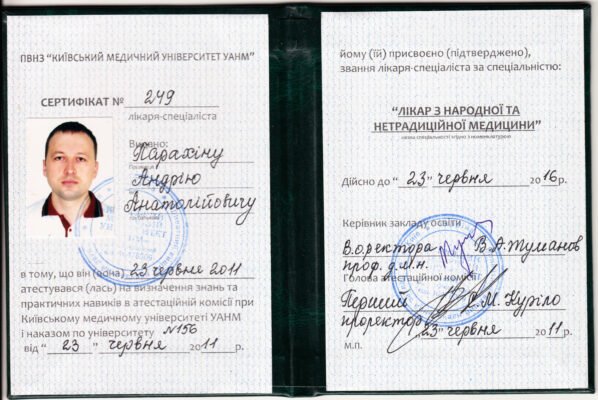 ПВНЗ "КИЇВСЬКИЙ МЕДИЧНИЙ УНІВЕРСИТЕТ УАНМ"
СЕРТИФІКАТ № 249
лікаря-спеціаліста
Видано:
Парахіну
Андрію
Анатолійовичу
в тому, що він (вона) 23 червня 2011
атестувався (лась) на визначення знань та
практичних навиків в атестаційній комісії при
Київському медичному університеті УАНМ
і наказом по університету №156
від "23" червня 2011 р.
йому (їй) присвоєно (підтверджено),
звання лікаря-спеціаліста за спеціальністю:
"ЛІКАР З НАРОДНОЇ ТА
НЕТРАДИЦІЙНОЇ МЕДИЦИНИ"
назва спеціальності згідно з номенклатурою
Дійсно до "23" червня 2016 р.
Керівник закладу освіти
В.о.ректора В.А.Туманов
проф. д.м.н.
Голова атестаційної комісії
Перший С.М. Куріло
проректор "23" червня 2011 р.
м.п.